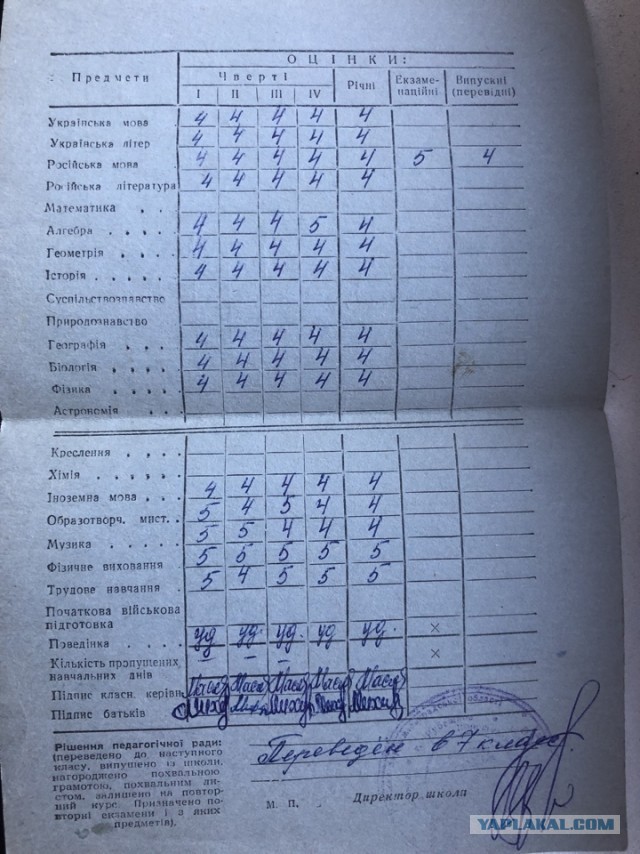 ОЦІНКИ:
Предмети Чверті Річні Екзаме-національні Випускні (перевідні)
I II III IV
Українська мова 4 4 4 4 4
Українська літер 4 4 4 4 4
Російська мова 4 4 4 4 4 5 4
Російська література 4 4 4 4 4
Математика . .
Алгебра . . . . . 4 4 4 5 4
Геометрія . . . 4 4 4 4 4
Історія . . . . . 4 4 4 4 4
Суспільствознавство
Природознавство
Географія . . . 4 4 4 4 4
Біологія . . . . 4 4 4 4 4
Фізика . . . . 4 4 4 4 4
Астрономія . . .
Креслення . . . .
Хімія . . . . .
Іноземна мова . . . 4 4 4 4 4
Образотворч. мист. . 5 4 5 4 4
Музика . . . . . 5 5 4 4 4
Фізичне виховання 5 5 5 5 5
Трудове навчання . 5 4 5 5 5
Початкова військова
підготовка
Поведінка . . . . уд уд. уд. уд уд. ×
Кількість пропущених — — — ×
навчальних днів
Підпис класн. керівн.
Підпис батьків
Рішення педагогічної ради:
(переведено до наступного
класу, випущено із школи,
нагороджено похвальною
грамотою, похвальним ли-
стом, залишено на повтор-
ний курс. Призначено по-
вторні екзамени і з яких
предметів).
Переведен в 7 класс.
М. П. Директор школи
YAPLAKAL.COM